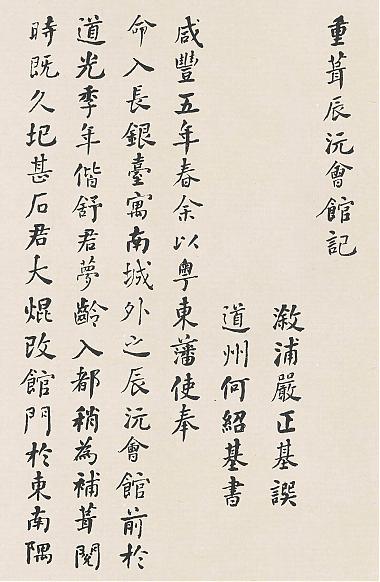 重葺辰沅會館記
漵浦嚴正基譔
道州何紹基書
咸豐五年春余以粵東藩使奉
命入長銀臺寓南城外之辰沅會館前於
道光季年偕舒君夢齡入都稍為補葺閱
時既久圮甚石君大焜改館門於東南隅